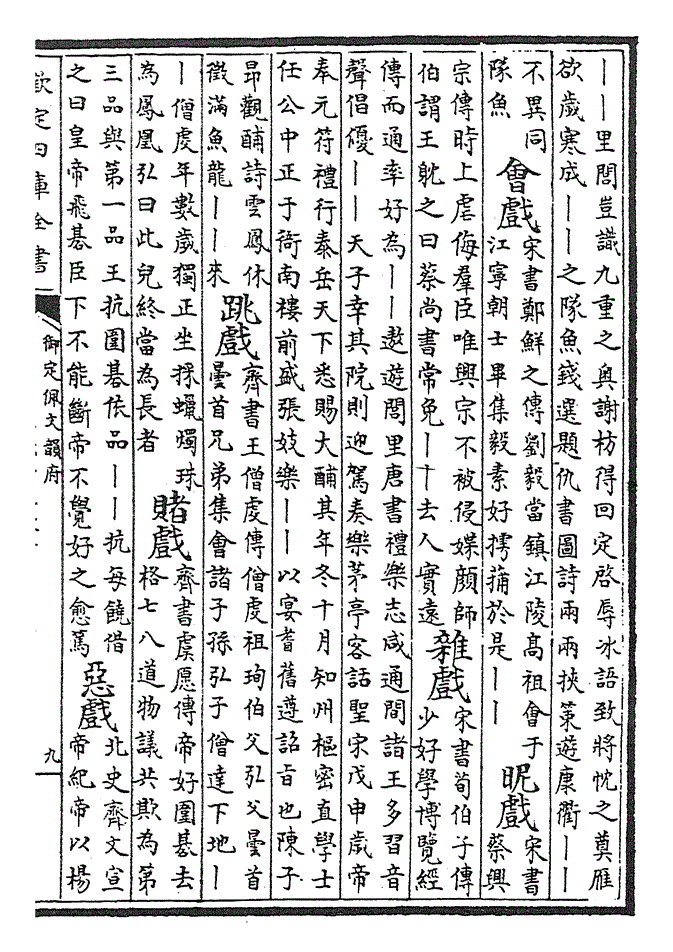 ——里閭豈識九重之奥謝枋得回定啓辱冰語致將忱之奠雁
欲歲寒成——之隊魚錢選題仇書圖詩兩兩挾策遊康衢——
不異同
隊魚
會戲
宋書鄭鮮之傳劉毅當鎮江陵髙祖會于
江寧朝士畢集毅素好摴蒱於是——
昵戲
宋書
蔡興
宗傳時上虐侮羣臣唯興宗不被侵媟顔師
伯謂王躭之曰蔡尚書常免—十去人實遠
雜戲
宋書荀伯子傳
少好學博覽經
傳而通率好為——遨遊閭里唐書禮樂志咸通間諸王多習音
聲倡優——天子幸其院則迎駕奏樂茅亭客話聖宋戊申歲帝
奉元符禮行泰岳天下悉賜大酺其年冬十月知州樞密直學士
任公中正于衙南樓前盛張妓樂——以宴耆舊遵詔㫖也陳子
昂觀酺詩雲鳳休
徵滿魚龍——來
跳戲
齊書王僧䖍傳僧䖍祖珣伯父弘父曇首
曇首兄弟集會諸子孫弘子僧達下地—
—僧䖍年數歲獨正坐採蠟燭珠
為鳳凰弘曰此兒終當為長者
賭戲
齊書虞愿傳帝好圍碁去
格七八道物議共欺為第
三品與第一品王抗圍碁依品——抗每饒借
之曰皇帝飛碁臣下不能斷帝不覺好之愈篤
惡戲
北史齊文宣
帝紀帝以楊
欽定四庫全書
御定佩文韻府
九